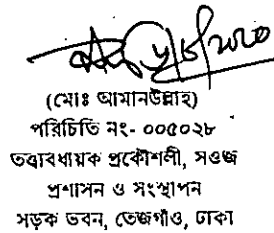 (মোঃ আমানউল্লাহ)
পরিচিতি নং- ০০৫০২৮
তত্ত্বাবধায়ক প্রকৌশলী, সওজ
প্রশাসন ও সংস্থাপন
সড়ক ভবন, তেজগাঁও, ঢাকা